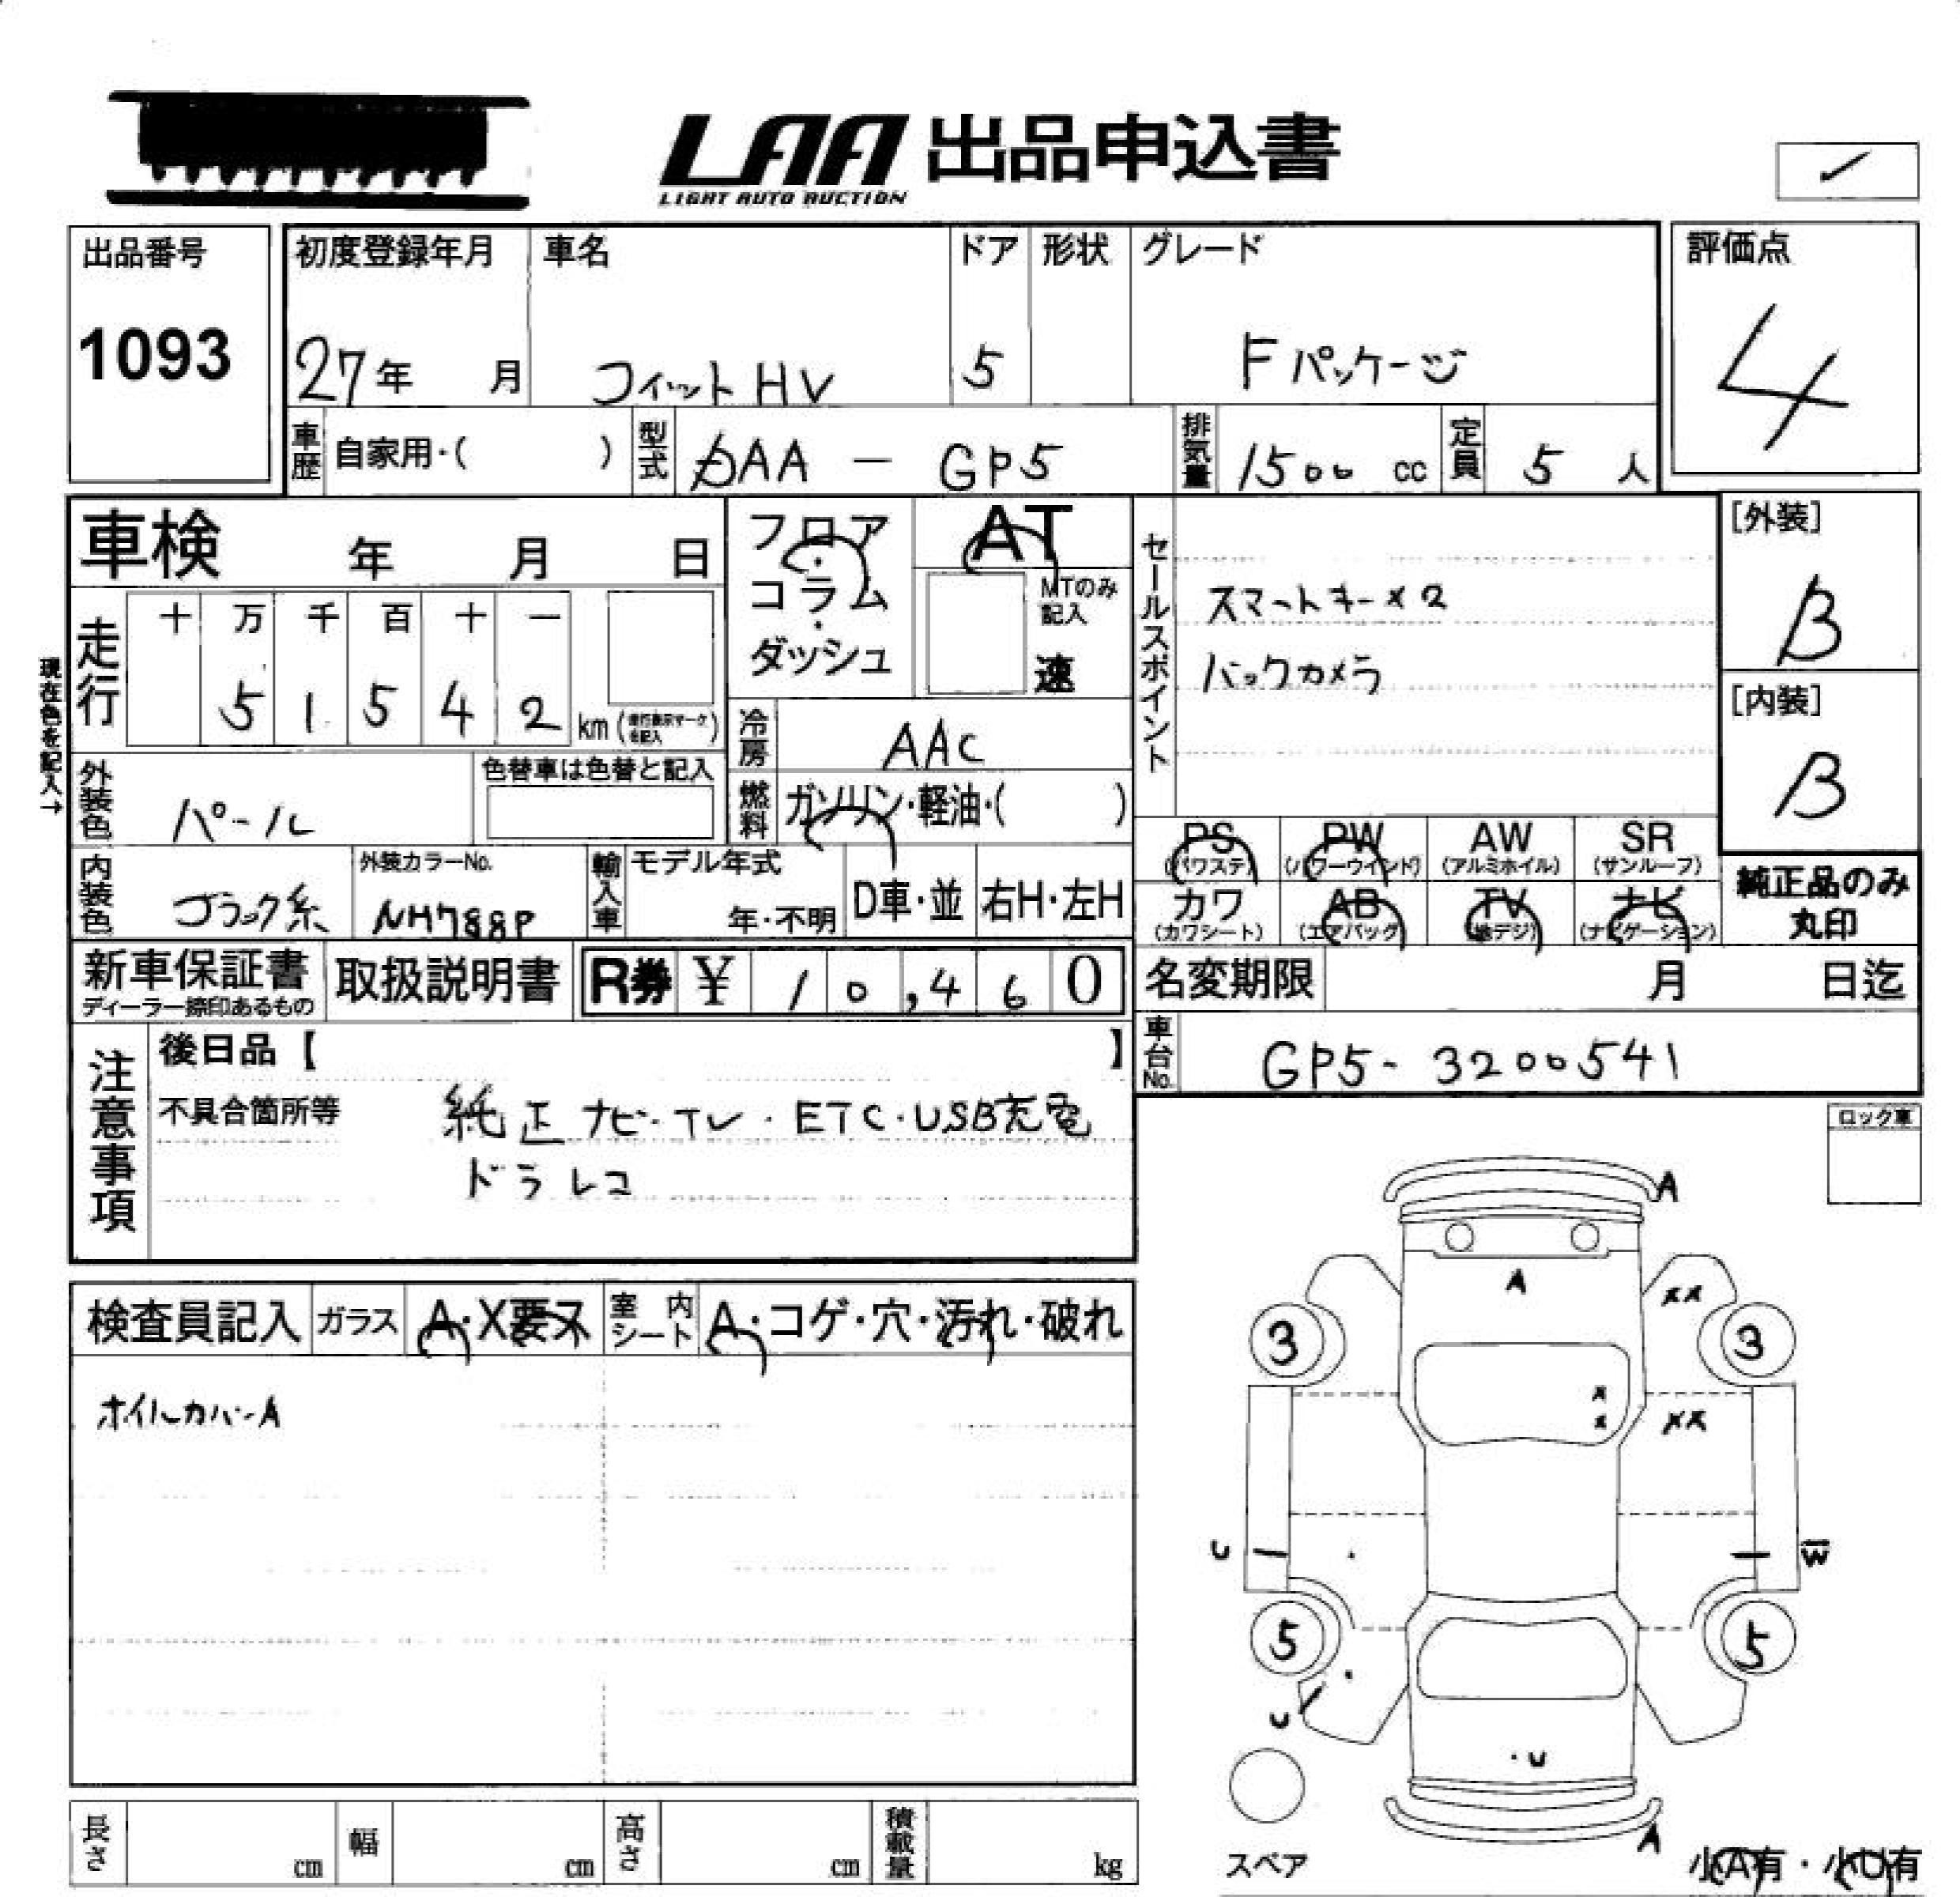 LAA 出品申込書
LIGHT AUTO AUCTION
出品番号
1093
初度登録年月
27年 月
車名
フィットHV
ドア
5
形状
グレード
Fパッケージ
評価点
4
車歴 自家用・( )
型式 DAA - GP5
排気量 1500 cc
定員 5 人
車検 年 月 日
フロア・コラム・ダッシュ
AT
MTのみ記入
速
セールスポイント
スマートキー×2
バックカメラ
[外装]
B
[内装]
B
現在色を記入→
走行
十 万 千 百 十 一
5 1 5 4 2 km (走行表示マークを記入)
冷房 AAC
燃料 ガソリン・軽油・( )
外装色 パール
色替車は色替と記入
PS (パワステ)
PW (パワーウインド)
AW (アルミホイル)
SR (サンルーフ)
カワ (カワシート)
AB (エアバッグ)
TV (地デジ)
ナビ (ナビゲーション)
純正品のみ
丸印
内装色 ブラック系
外装カラーNo.
NH788P
輸入車
モデル年式
年・不明
D車・並
右H・左H
新車保証書
ディーラー捺印あるもの
取扱説明書
R券 ¥ 10,460
名変期限 月 日迄
車台No. GP5-3200541
注意事項
後日品【 】
不具合箇所等 純正ナビ・TV・ETC・USB充電
ドラレコ
ロック車
検査員記入
ガラス A・X要ヌ
室内シート A・コゲ・穴・汚れ・破れ
ホイルカバーA
A
A
××
3
3
×
×
××
U
W
5
5
U
・U
A
スペア
小A有・小U有
長さ cm
幅 cm
高さ cm
積載量 kg